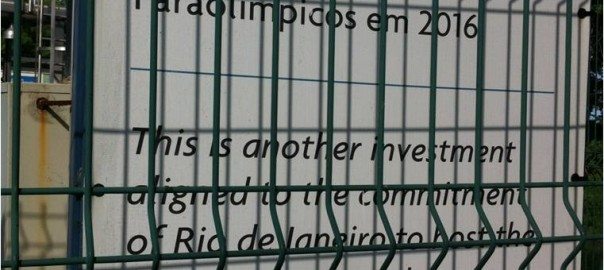 Paraolímpicos em 2016
This is another investment
aligned to the commitment
of Rio de Janeiro to host the